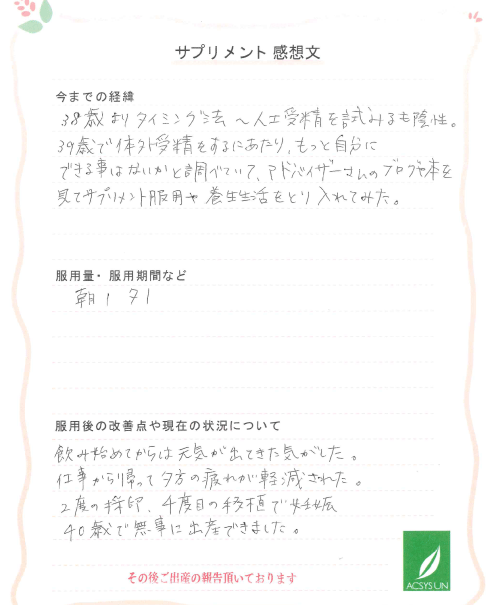 サプリメント 感想文
今までの経緯
38歳よりタイミング法〜人工受精を試みるも陰性。
39歳で体外受精をするにあたり、もっと自分に
できる事はないかと調べていて、アドバイザーさんのブログや本を
見てサプリメント服用や養生生活をとり入れてみた。
服用量・服用期間など
朝1 夕1
服用後の改善点や現在の状況について
飲み始めてからは元気が出てきた気がした。
仕事から帰って夕方の疲れが軽減された。
2度の採卵、4度目の移植で妊娠
40歳で無事に出産できました。
その後ご出産の報告頂いております
ACSYSUN